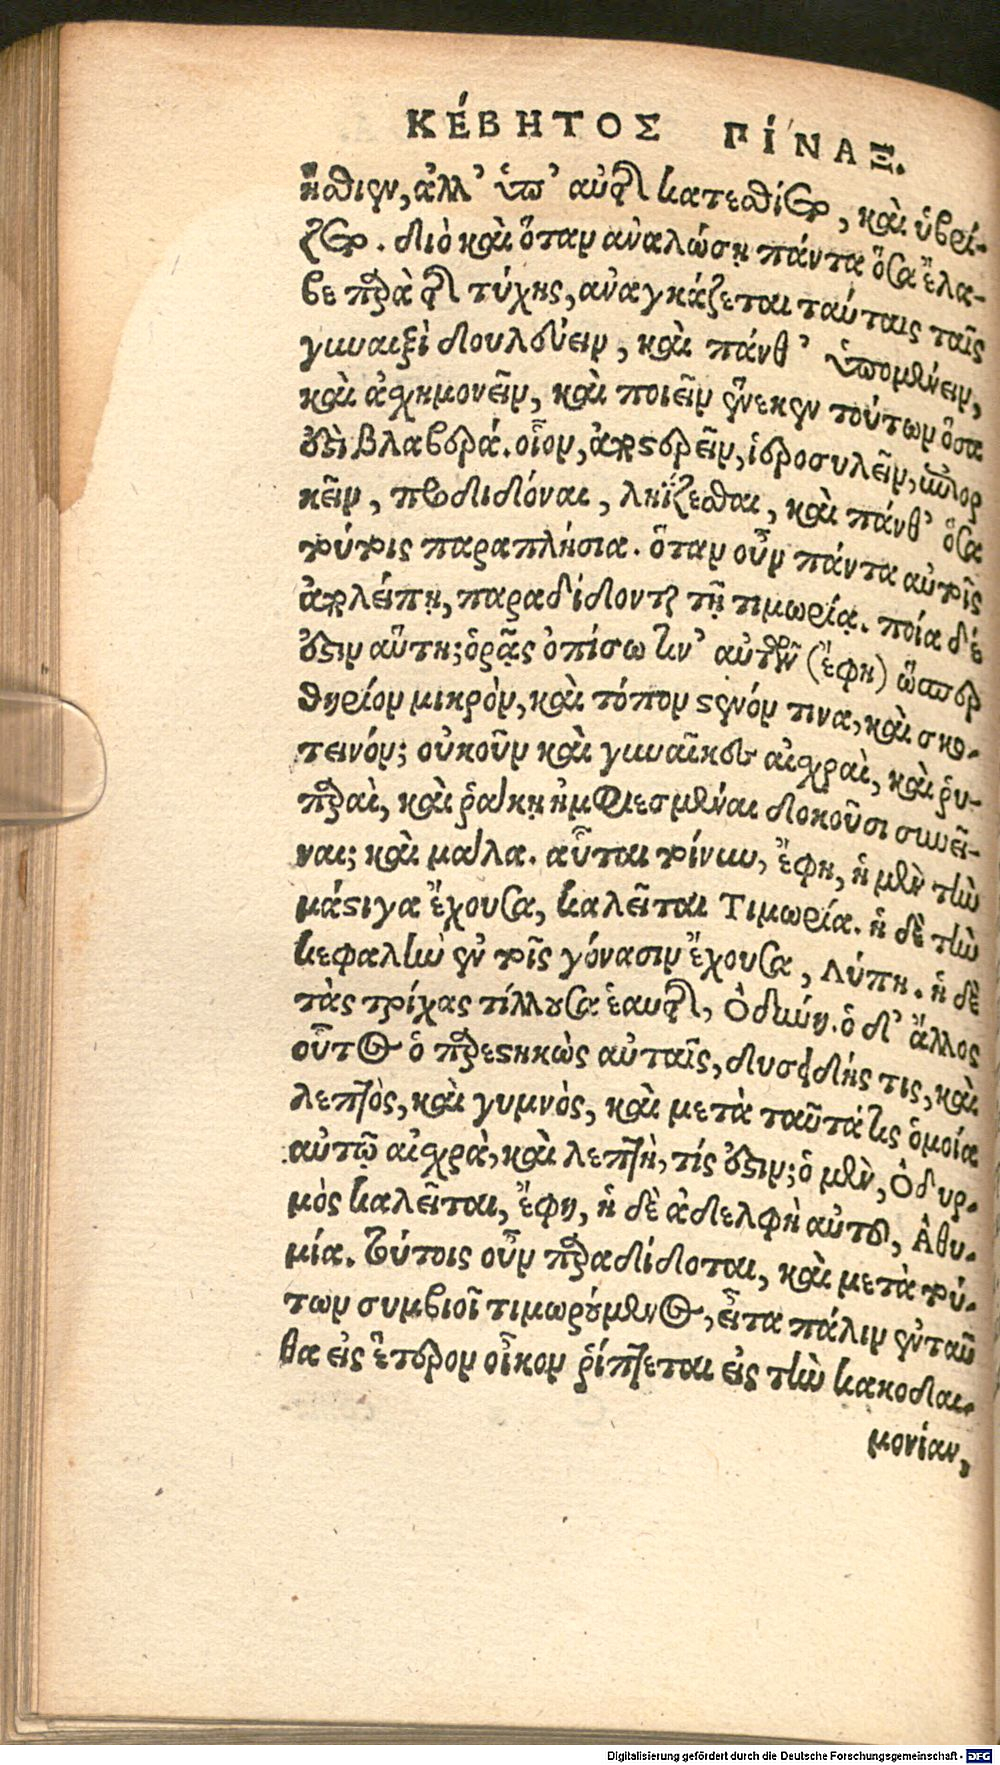 ΚΈΒΗΤΟΣ ΠΊΝΑΞ.
ἤσθιεν, ἀλλ' ὑπ' αὐτῆς κατεσθίετο, καὶ ὑβρί-
ζετο. διὸ καὶ ὅταν ἀναλώσῃ πάντα ὅσα ἔλα-
βε παρὰ τῆς τύχης, ἀναγκάζεται ταύταις ταῖς
γυναιξὶ δουλεύειν, καὶ πάνθ' ὑπομένειν,
καὶ ἀσχημονεῖν, καὶ ποιεῖν ἕνεκεν τούτων ὅσα
ἐστὶ βλαβερά. οἷον, ἀποστερεῖν, ἱεροσυλεῖν, ἐπιορ
κεῖν, προδιδόναι, ληΐζεσθαι, καὶ πάνθ' ὅσα
τούτοις παραπλήσια. ὅταν οὖν πάντα αὐτοῖς
ἀπολείπῃ, παραδίδονται τῇ τιμωρίᾳ. ποία δέ
ἐστιν αὕτη; ὁρᾷς ὀπίσω τιν' αὐτῶν (ἔφη) ὥσπερ
θηρίον μικρὸν, καὶ τόπον στενόν τινα, καὶ σκο-
τεινόν; οὐκοῦν καὶ γυναῖκες αἰσχραὶ, καὶ ῥυ-
παραὶ, καὶ ῥάκη ἠμφιεσμέναι δοκοῦσι συνεῖ-
ναι; καὶ μάλα. αὗται τοίνυν, ἔφη, ἡ μὲν τὴν
μάστιγα ἔχουσα, καλεῖται Τιμωρία. ἡ δὲ τὴν
κεφαλὴν ἐν τοῖς γόνασιν ἔχουσα, Λύπη. ἡ δὲ
τὰς τρίχας τίλλουσα ἑαυτῆς, Ὀδύνη. ὁ δ' ἄλλος
οὗτος ὁ παρεστηκὼς αὐταῖς, δυσειδής τις, καὶ
λεπτὸς, καὶ γυμνὸς, καὶ μετὰ ταῦτά τις ὁμοία
αὐτῷ αἰσχρὰ, καὶ λεπτὴ, τίς ἐστιν; ὁ μὲν, Ὀδυρ-
μὸς καλεῖται, ἔφη, ἡ δὲ ἀδελφὴ αὐτοῦ, Ἀθυ-
μία. τούτοις οὖν παραδίδοται, καὶ μετὰ τού-
των συμβιοῖ τιμωρούμενος, εἶτα πάλιν ἐνταῦ
θα εἰς ἕτερον οἶκον ῥίπτεται εἰς τὴν κακοδαι-
μονίαν,
Digitalisierung gefördert durch die Deutsche Forschungsgemeinschaft - DFG